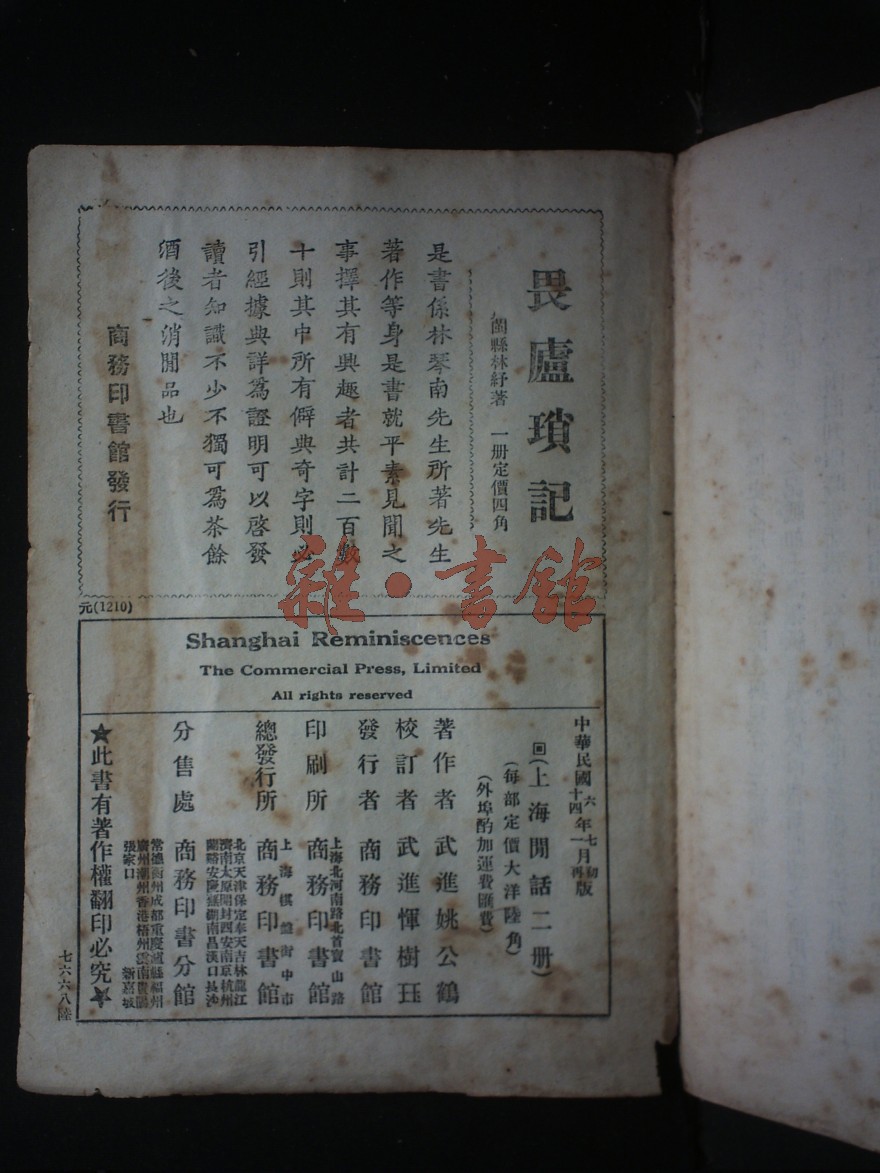 畏廬瑣記
閩縣林紓著 一册定價四角
是書係林琴南先生所著先生
著作等身是書就平素見聞之
事擇其有興趣者共計二百數
十則其中所有僻典奇字則必
引經據典詳爲證明可以啓發
讀者知識不少不獨可爲茶餘
酒後之消閒品也
商務印書館發行
元(1210)
雜·書館
Shanghai Reminiscences
The Commercial Press, Limited
All rights reserved
中華民國六年七月初版
十四年一月再版
(上海閒話二册)
(每部定價大洋陸角)
(外埠酌加運費匯費)
著作者 武進姚公鶴
校訂者 武進惲樹珏
發行者 商務印書館
印刷所 上海北河南路北首寶山路 商務印書館
總發行所 上海棋盤街中市 商務印書館
分售處 商務印書分館
北京天津保定奉天吉林龍江
濟南太原開封西安南京杭州
蘭谿安慶蕪湖南昌漢口長沙
常德衡州成都重慶瀘縣福州
廣州潮州香港梧州雲南貴陽
張家口 新嘉坡
★此書有著作權翻印必究★
七六六八陸